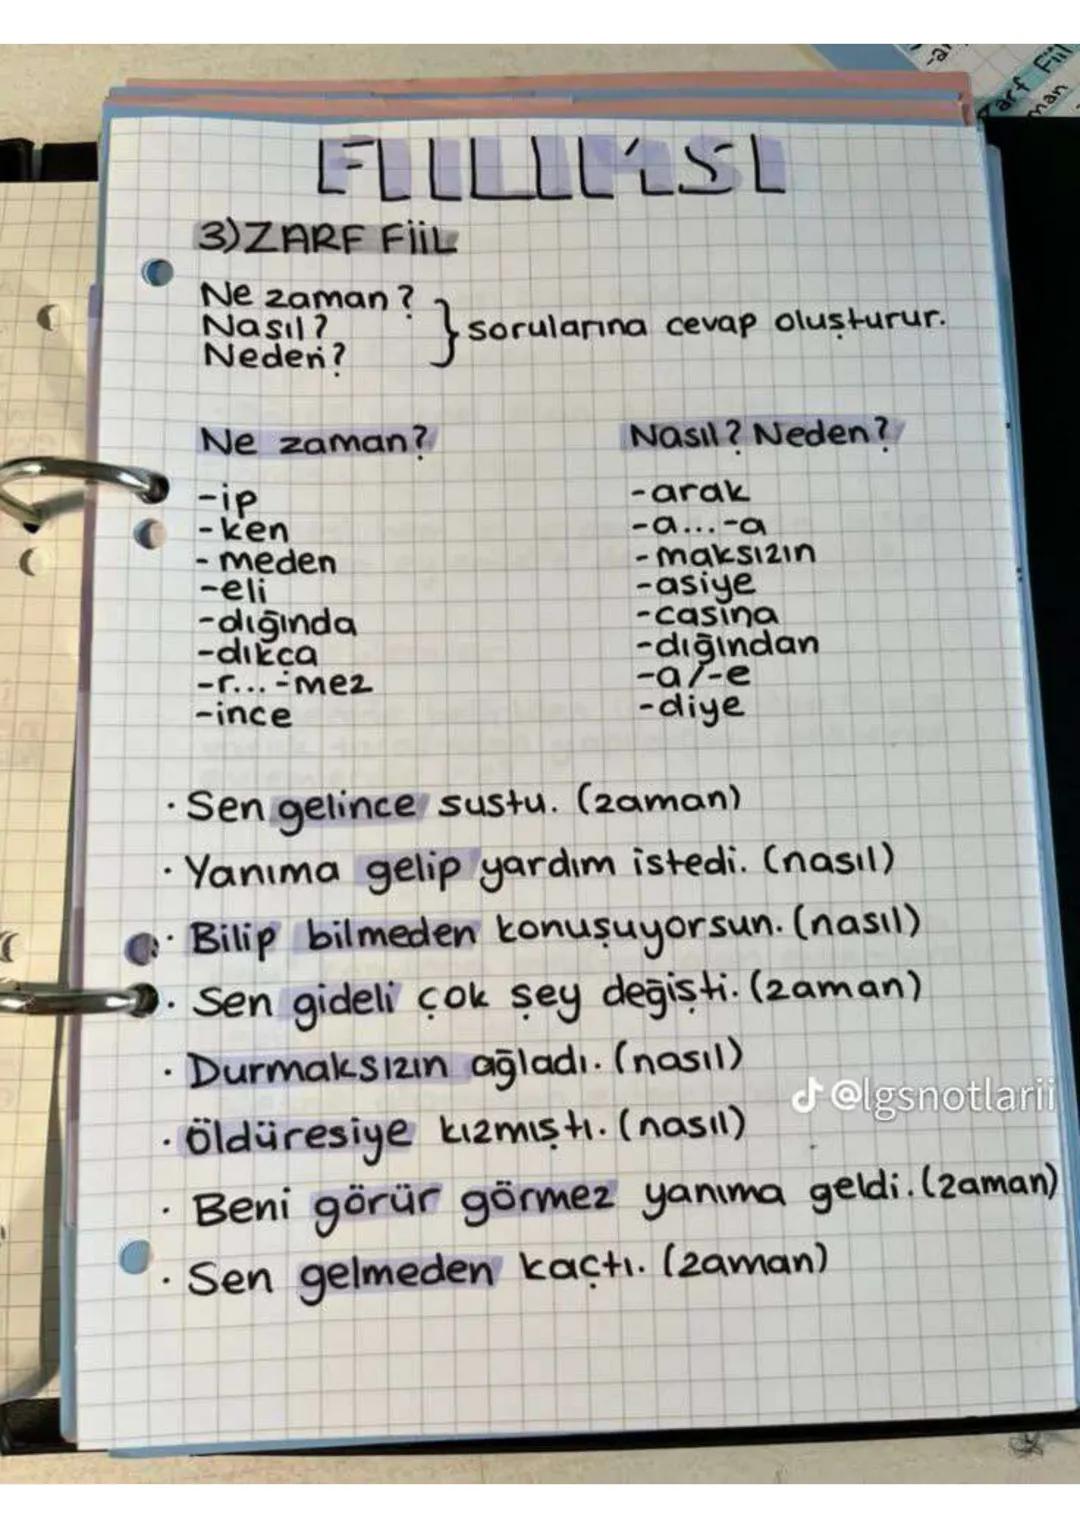 FİİLİMSİ
3)ZARF FİİL
Ne zaman?
Nasıl?
Neden?
} sorularına cevap oluşturur.
Ne zaman?
-ip
-ken
-meden
-eli
-dığında
-dıkça
-r...-mez
-ince
Nasıl? Neden?
-arak
-a...-a
-maksızın
-asiye
-casına
-dığından
-a/-e
-diye
· Sen gelince sustu. (zaman)
· Yanıma gelip yardım istedi. (nasıl)
· Bilip bilmeden konuşuyorsun. (nasıl)
· Sen gideli çok şey değişti. (zaman)
· Durmaksızın ağladı. (nasıl)
· Öldüresiye kızmıştı. (nasıl)
· Beni görür görmez yanıma geldi. (zaman)
· Sen gelmeden kaçtı. (zaman)
@lgsnotlarii
Zarf Fiil